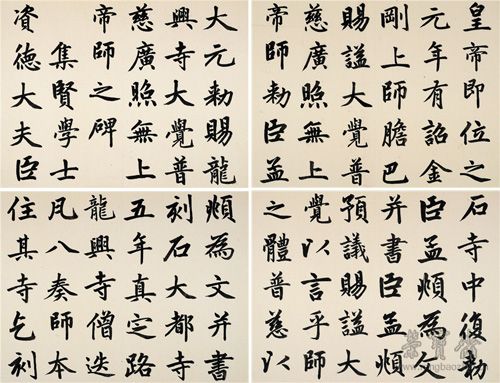 大元勑賜龍
興寺大覺普
慈廣照無上
帝師之碑
集賢學士
資德大夫臣
皇帝即位之
元年有詔金
剛上師膽巴
賜謚大覺普
慈廣照無上
帝師勑臣孟
頫為文并書
刻石大都寺
五年真定路
龍興寺僧迭
凡八奏師本
住其寺乞刻
石寺中復勑
臣孟頫為文
并書臣孟頫
預議賜謚大
覺以言乎師
之體普慈以
榮寶齋